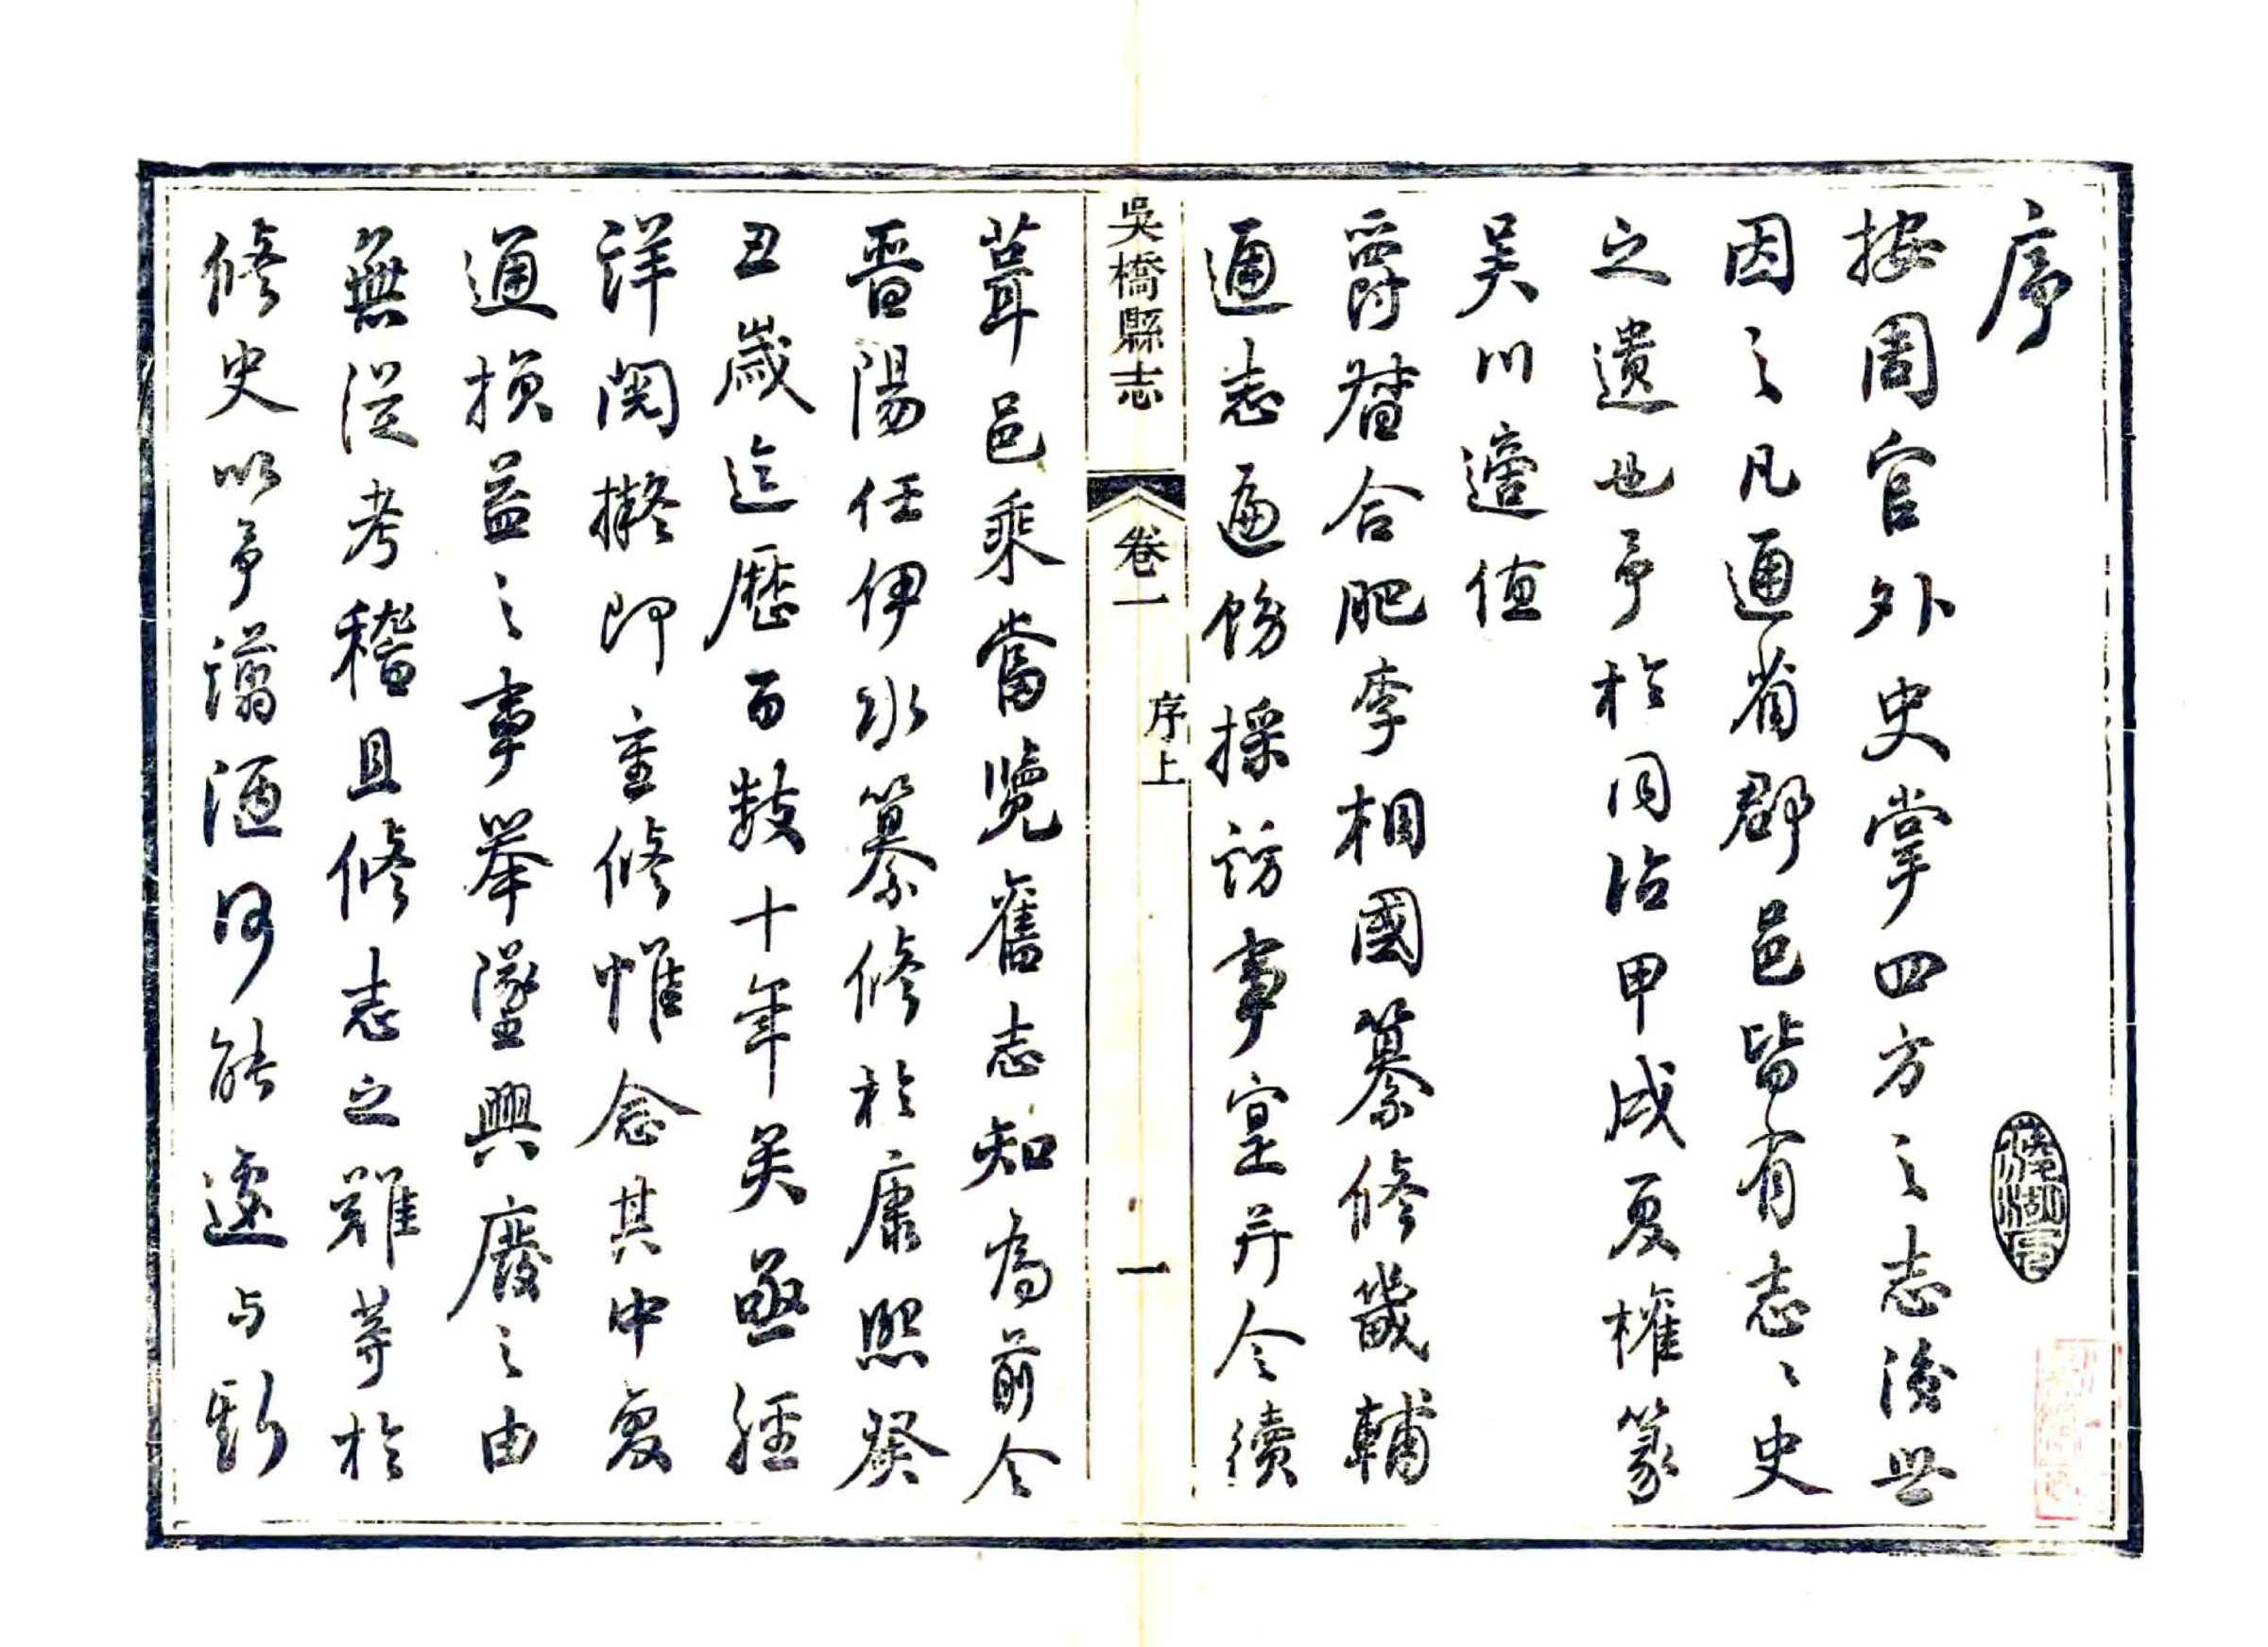 序
按周官外史掌四方之志後世
因之凡通省郡邑皆有志〻史
之遺也予於同治甲戌夏權篆
吴川適值
爵督合肥李相國纂修畿輔
通志遍飭採訪事宜并令續
葺邑乘嘗覽舊志知為前令
晉陽任伊水纂修於康熙癸
丑歲迄歷百數十年矣亟經
詳閱擬即重修惟念其中變
通損益之事舉墜興廢之由
無從考稽且修志之難等於
修史以予譾陋何能遽与斯
吳橋縣志
卷一
序上
一